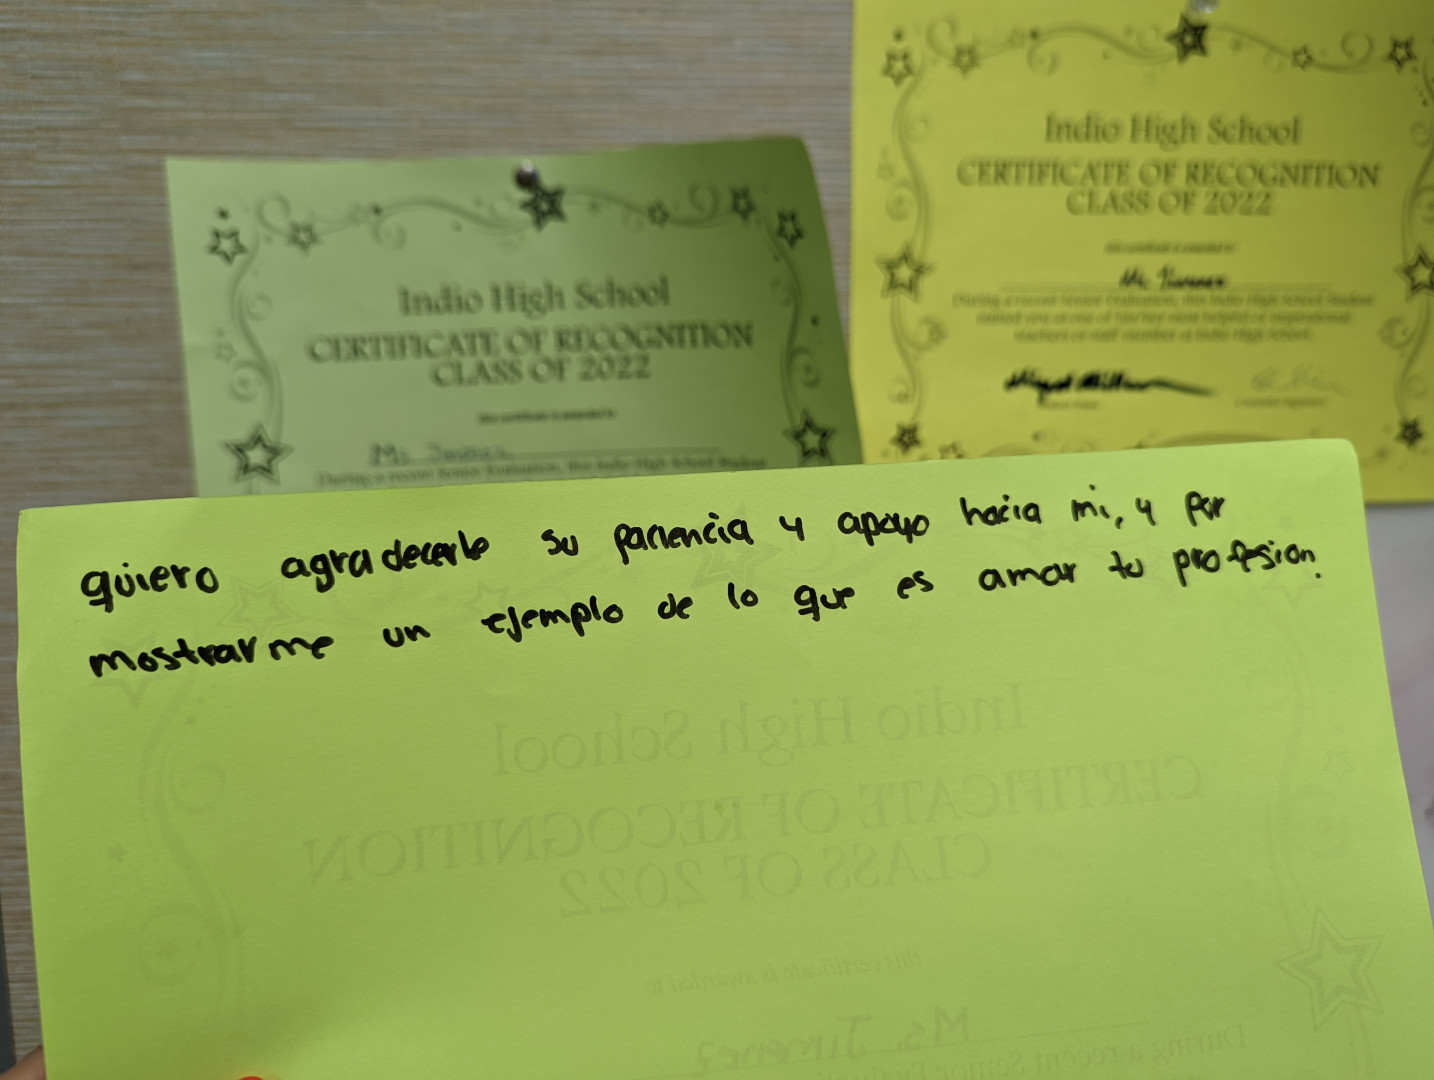 Indio High School
CERTIFICATE OF RECOGNITION
CLASS OF 2022
this certificate is awarded to
Ms. Jimenez
During a recent Senior Evaluation, this Indio High School Student
named you as one of his/her most helpful or inspirational
teachers or staff member at Indio High School.
Indio High School
CERTIFICATE OF RECOGNITION
CLASS OF 2022
this certificate is awarded to
Ms
During a recent Senior Evaluation, this Indio High School Student
quiero agradecerle su paciencia y apoyo hacia mi, y por
mostrarme un ejemplo de lo que es amar tu profesion.
Indio High School
CERTIFICATE OF RECOGNITION
CLASS OF 2022
this certificate is awarded to
Ms. Jimenez
During a recent Senior Evaluation